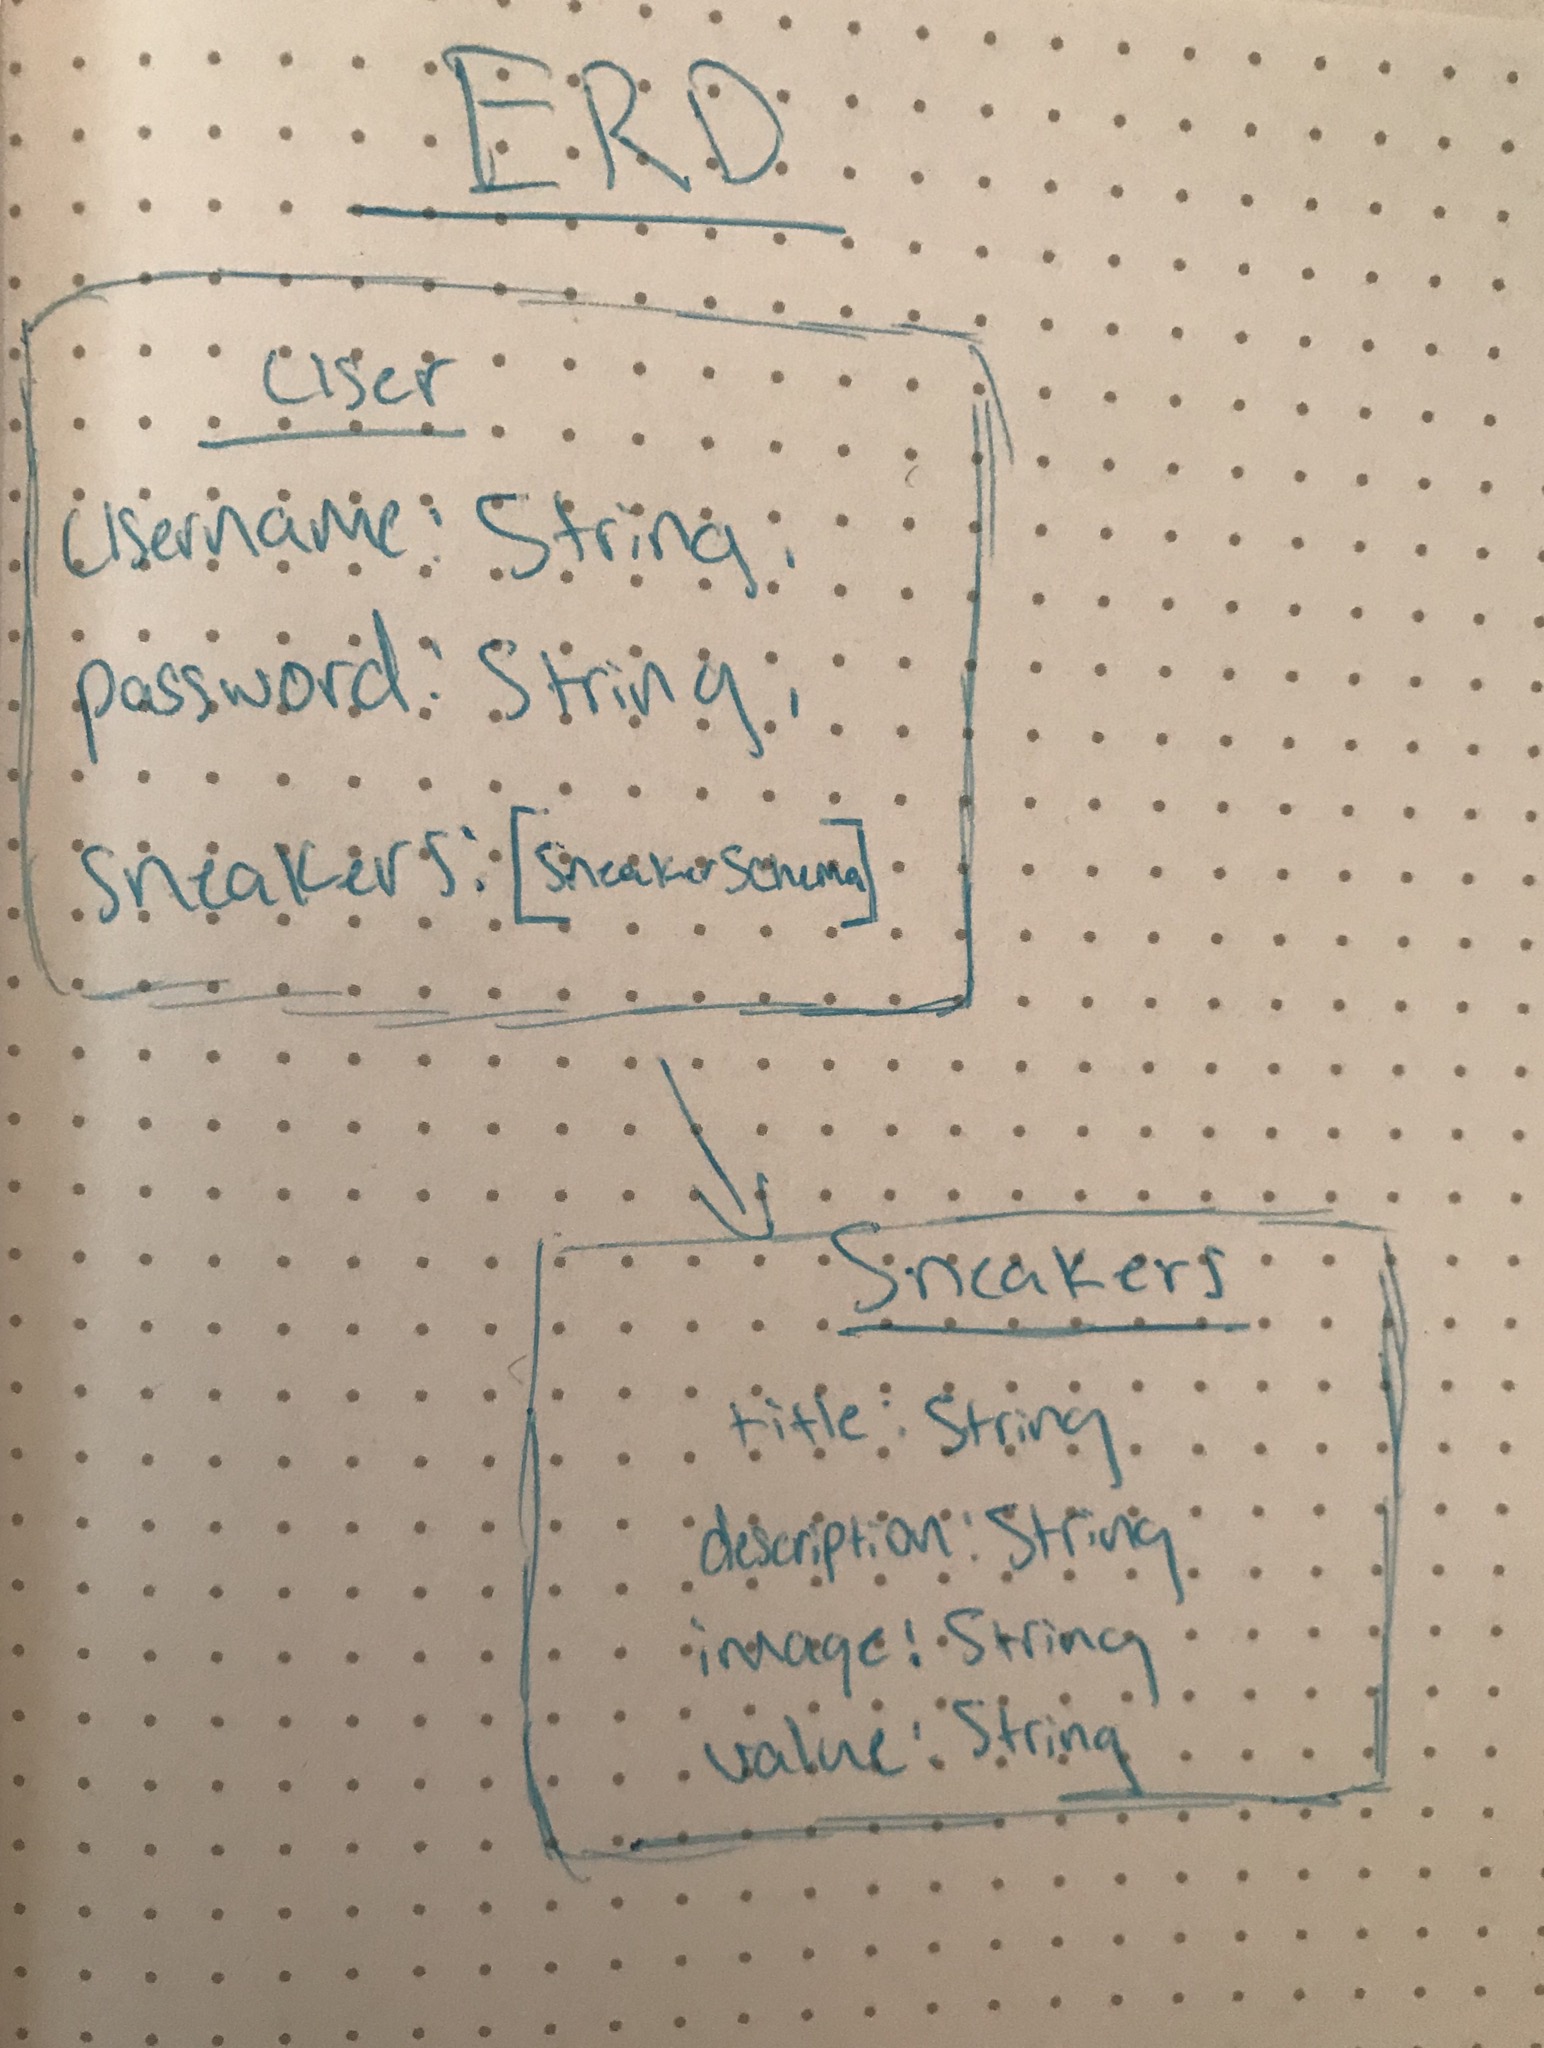 ERD
User
Username: String,
password: String,
sneakers: [SneakerSchema]
Sneakers
title: String
description: String
image: String
value: String